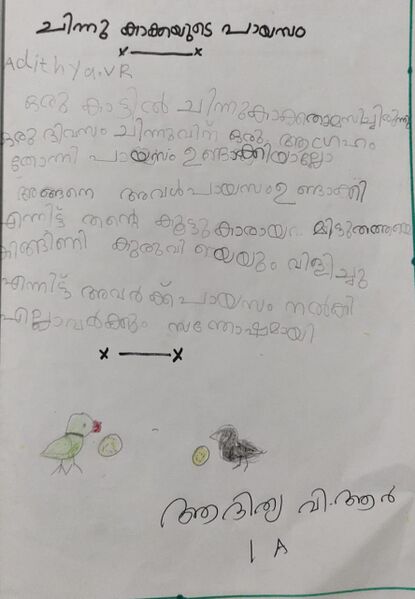 ചിന്നു കാക്കയുടെ പായസം
Adithya.VR
ഒരു കാട്ടിൽ ചിന്നുകാക്കതാമസിച്ചിരുന്നു
ഒരു ദിവസം ചിന്നുവിന് ഒരു ആഗ്രഹം
തോന്നി പായസം ഉണ്ടാക്കിയാല്ലോ
അങ്ങനെ അവൾപായസംഉണ്ടാക്കി
എന്നിട്ട് തന്റെ കൂട്ടുകാരായ മിട്ടുതത്തയെ
കിങ്ങിണി കുരുവിയെയും വിളിച്ചു
എന്നിട്ട് അവർക്ക് പായസം നൽകി
എല്ലാവർക്കും സന്തോഷമായി
ആദിത്യ വി.ആർ
1 A